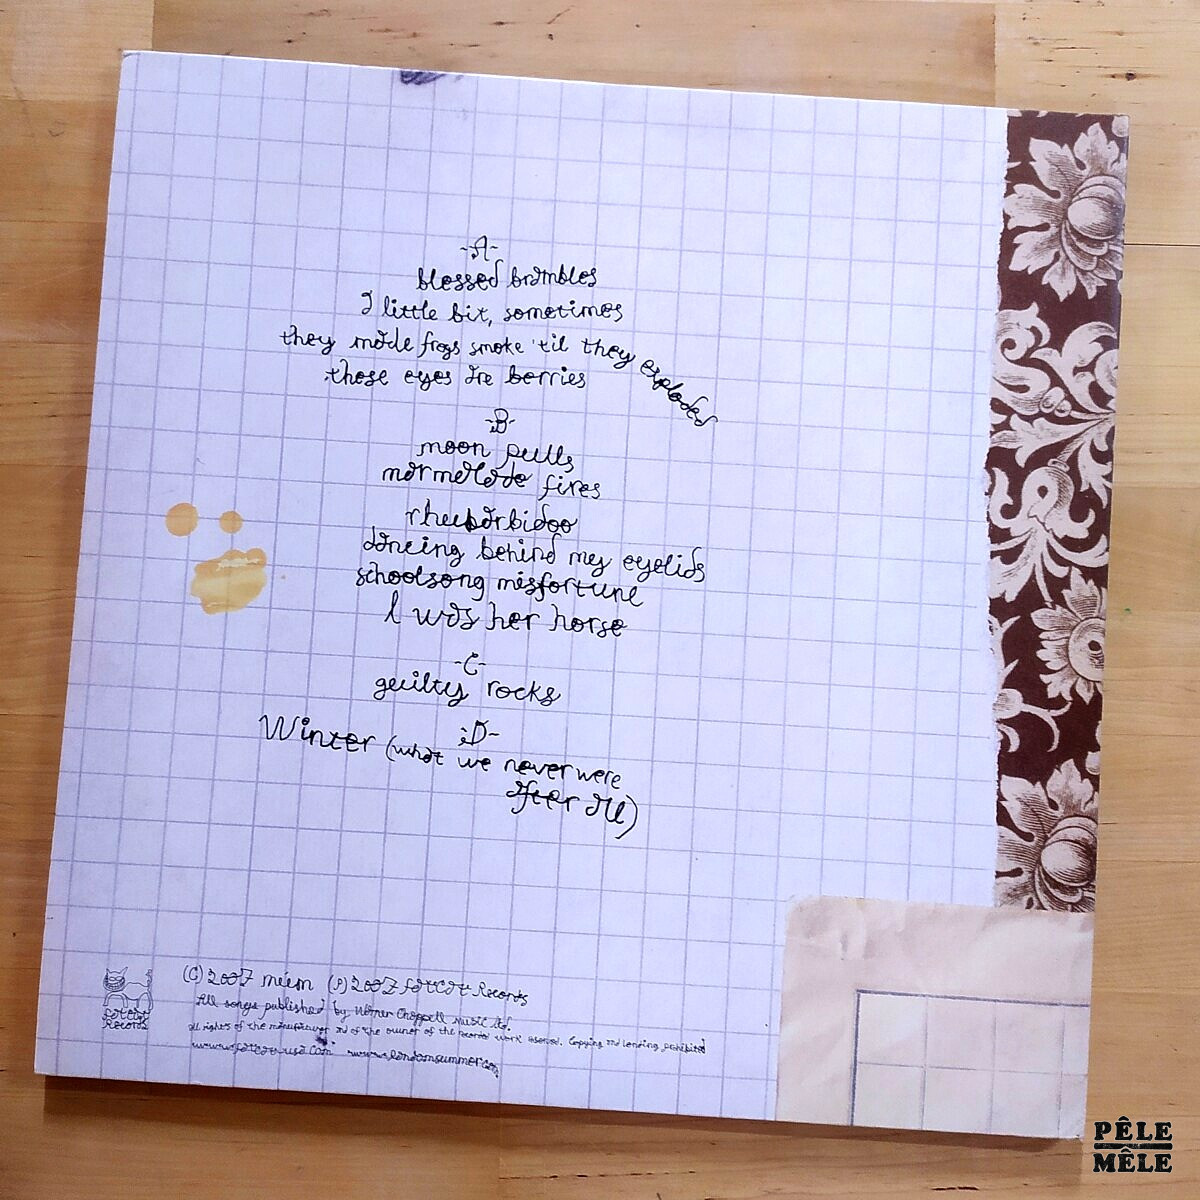 -A-
blessed brambles
I little bit, sometimes
they made frogs smoke 'til they exploded
these eyes are berries
-B-
moon pulls
marmalade fires
rhuubarbidoo
dancing behind my eyelids
schoolsong misfortune
I was her horse
-C-
guilty rocks
-D-
Winter (what we never were
after all)
(C) 2007 múm (P) 2007 fatcat Records
All songs published by Warner Chappell Music Ltd.
All rights of the manufacturer and of the owner of the recorded work reserved. Copying and lending prohibited
www.fatcat-usa.com www.randomsummer.com
fatcat
Records
PÊLE
MÊLE